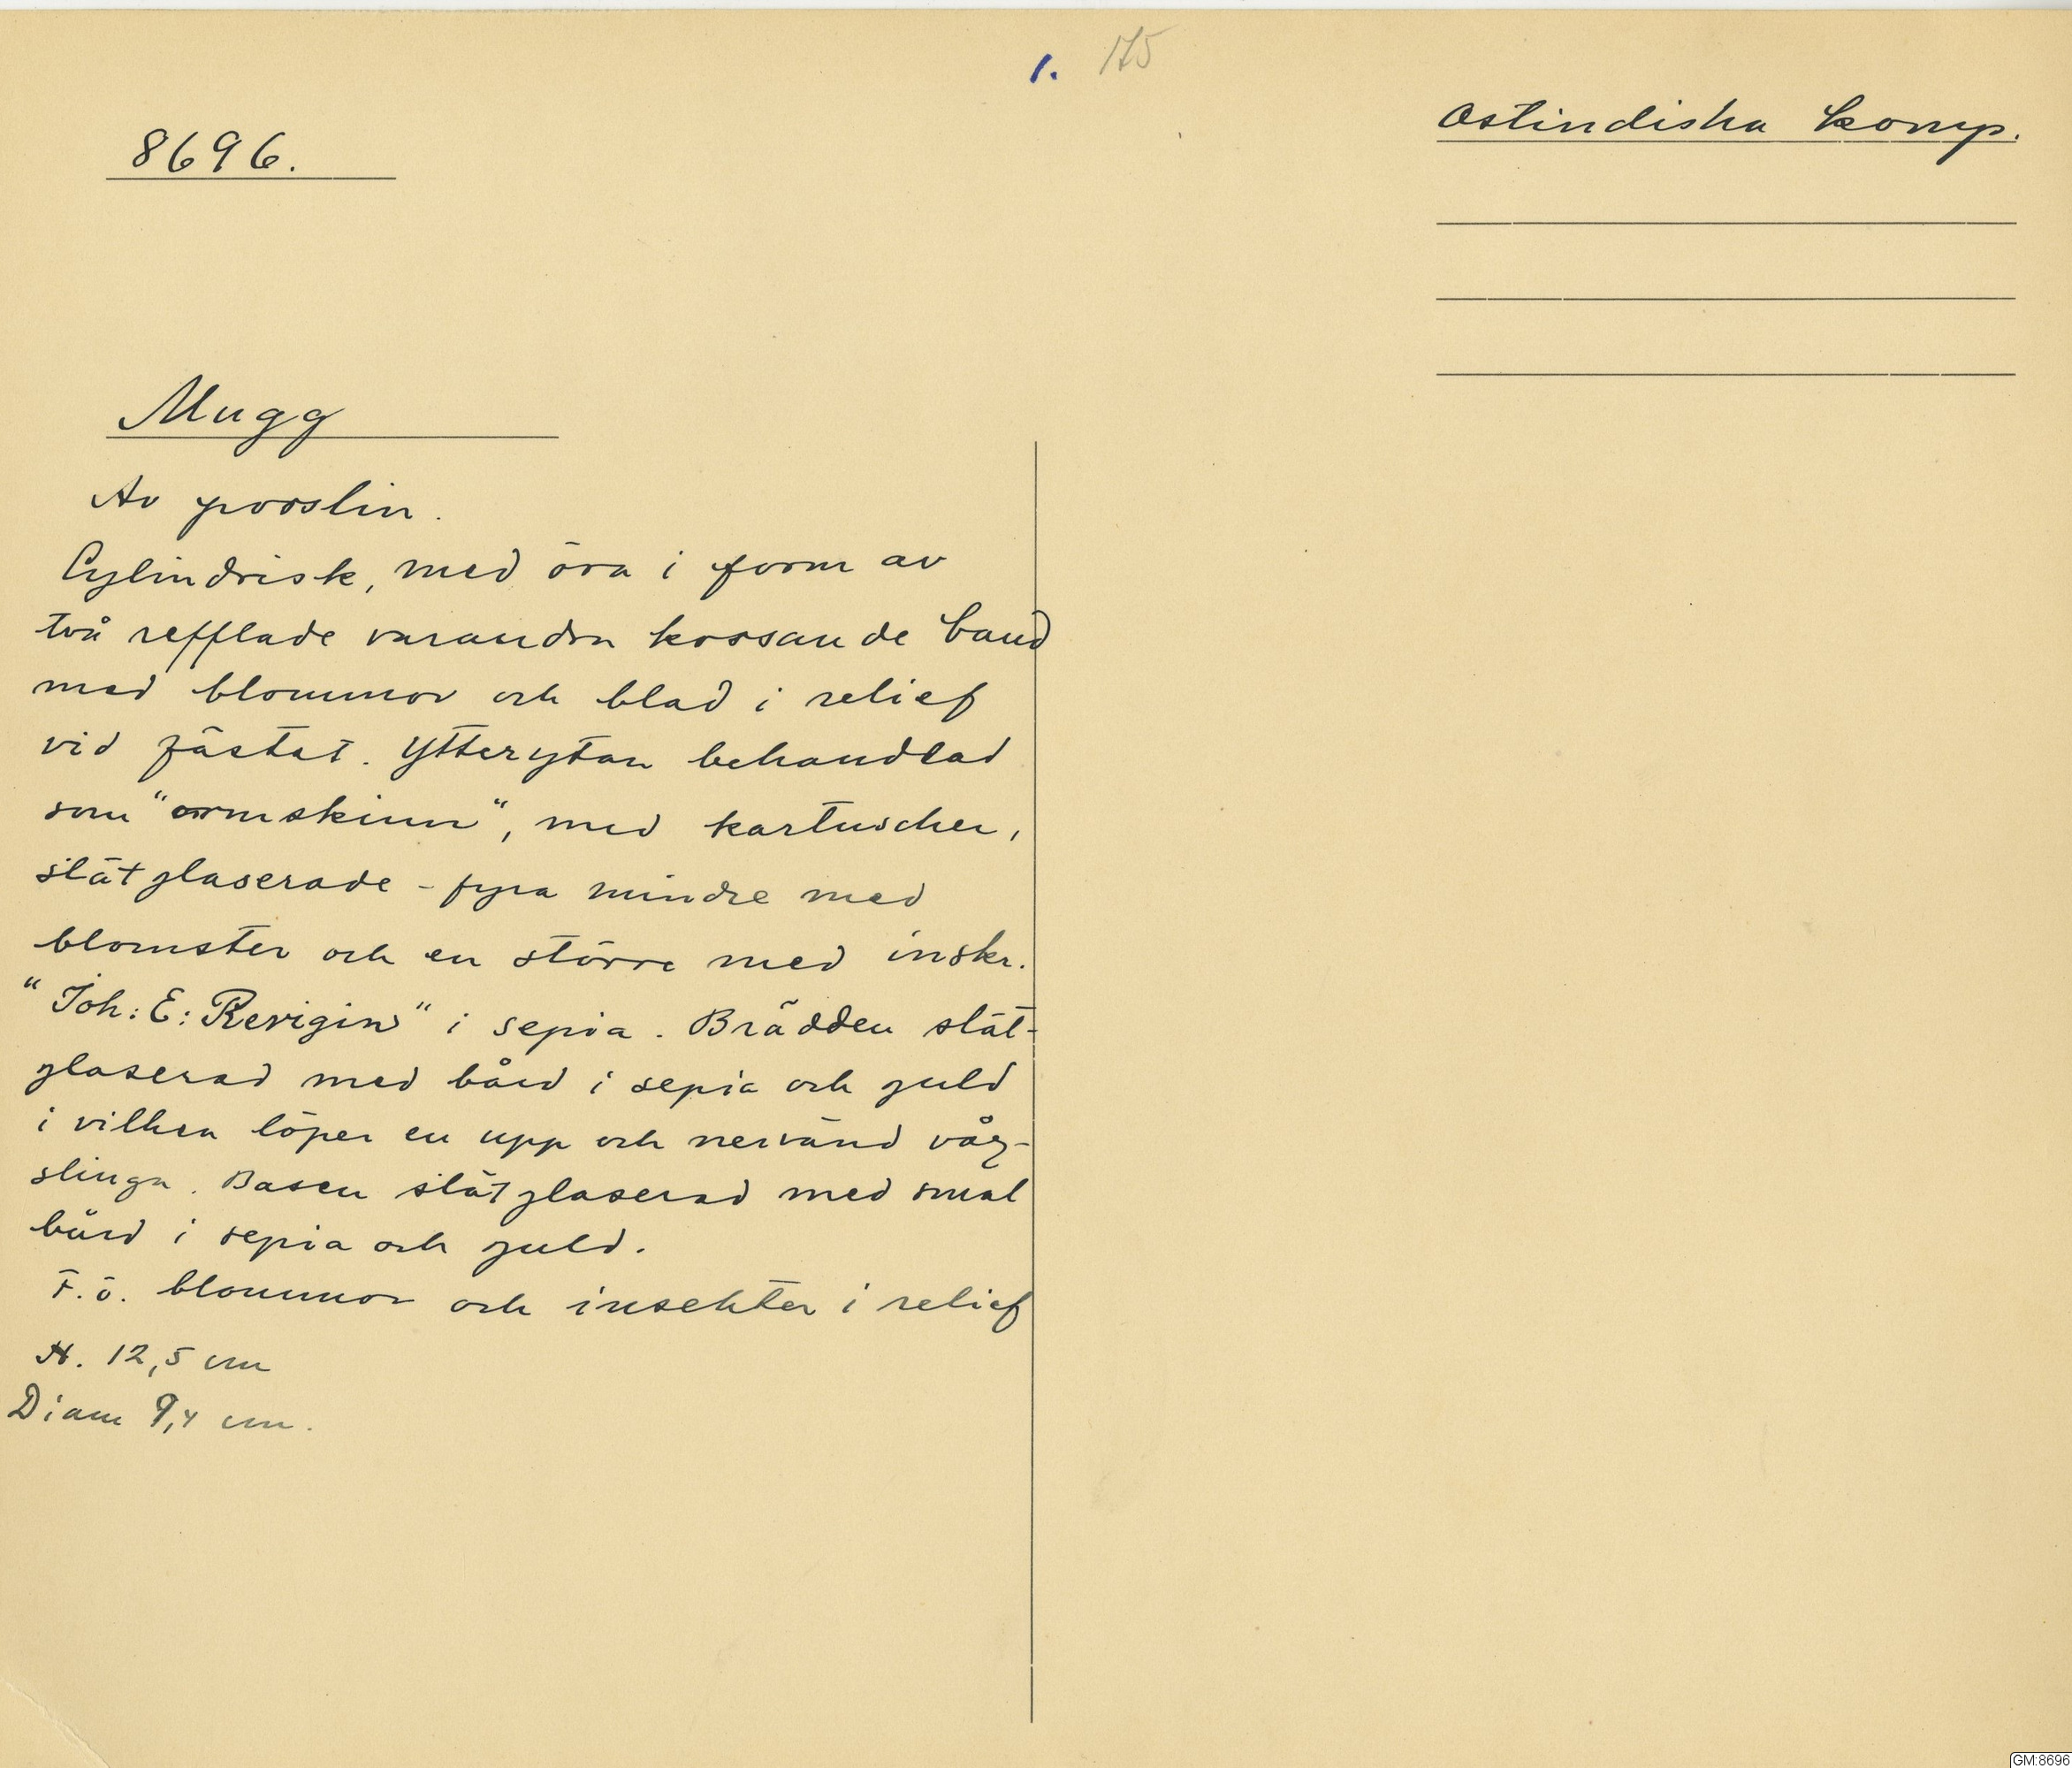 1. 175
8696.
Ostindiska komp.
Mugg
Av porslin.
Cylindrisk, med öra i form av
två refflade varandra korsande band
med blommor och blad i relief
vid fästet. Ytterytan behandlad
som "ormskinn", med kartuscher,
slätglaserade - fyra mindre med
blomster och en större med inskr.
"Joh: E: Revigin" i sepia. Brädden slät-
glaserad med bård i sepia och guld
i vilken löper en upp och nervänd våg-
slinga. Basen slätglaserad med smal
bård i sepia och guld.
F. ö. blommor och insekter i relief
H. 12,5 cm
Diam 9,4 cm.
GM:8696